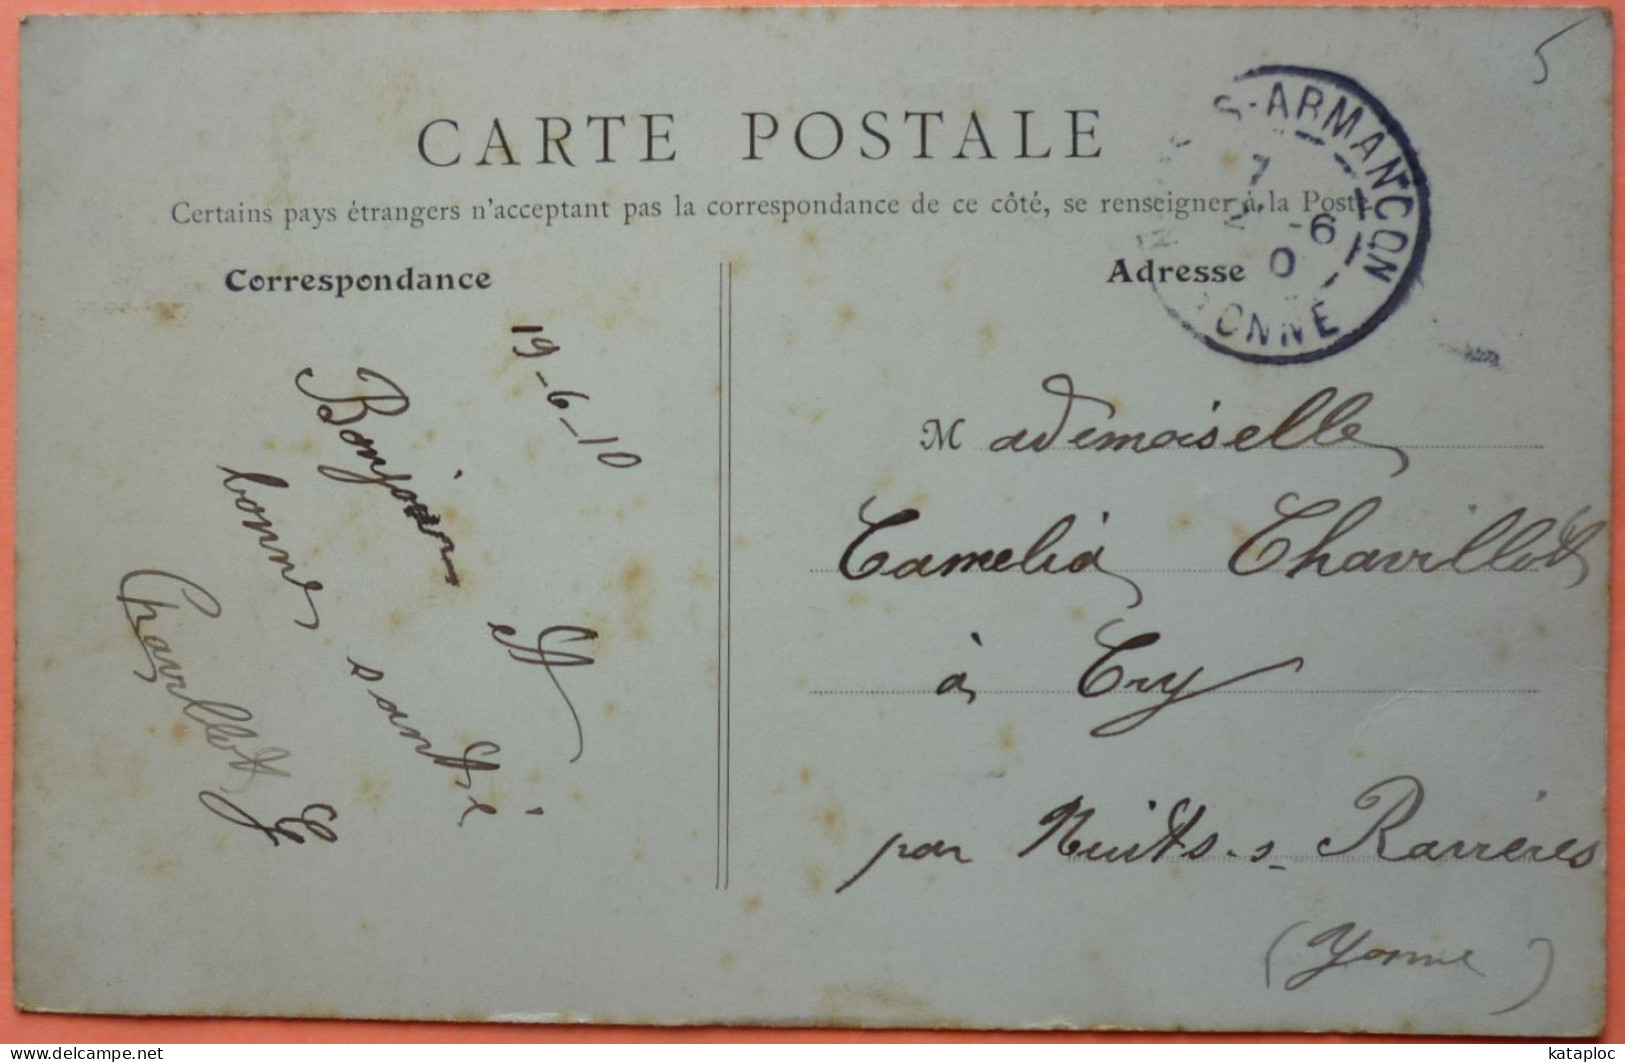 5
CARTE POSTALE
Certains pays étrangers n'acceptant pas la correspondance de ce côté, se renseigner à la Poste.
S-ARMANÇON
7
2 -6
0
YONNE
Correspondance
19-6-10
Bonjour et
bonne santé
Chavillot E
Adresse
Mademoiselle
Camelia Chavillot
à Cry
par Nuits-s-Ravières
(Yonne)
www.delcampe.net
kataploc